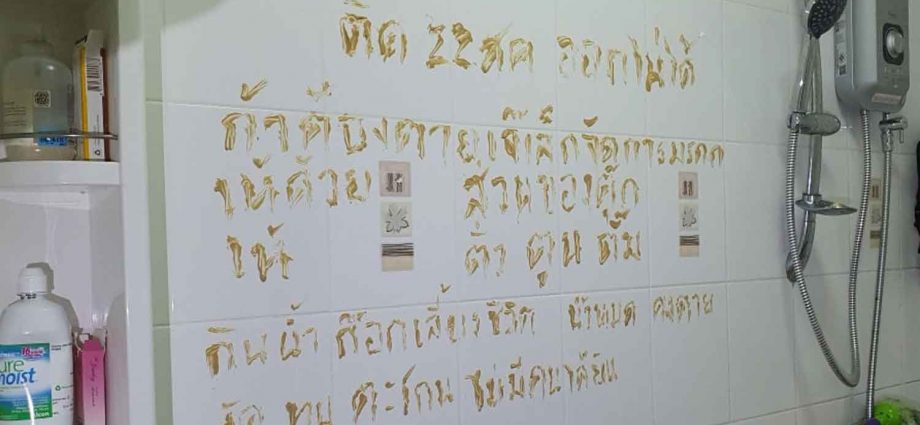 ติด 22 ทค ออกไม่ได้
ตายเจ๊เล็กจัดการมรดก
ให้ด้วย ส่วนของตุ๊ก
ให้ ต้า ตูน ตั้ม
กินน้ำ ก๊อกเลี้ยงชีวิต น้ำหมด คงตาย
ตะโกน ไม่มีคนได้ยิน
ure
moist